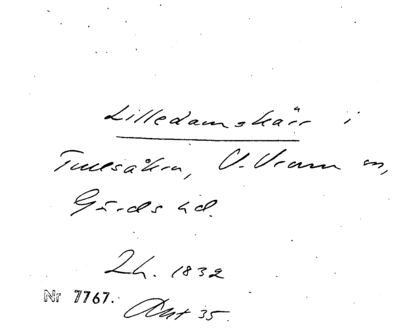 Lilledamskärr i
Tullsåkra, V. Vram sn,
Gärds hd.
Lh. 1832
Nr 7767.
Akt 35.